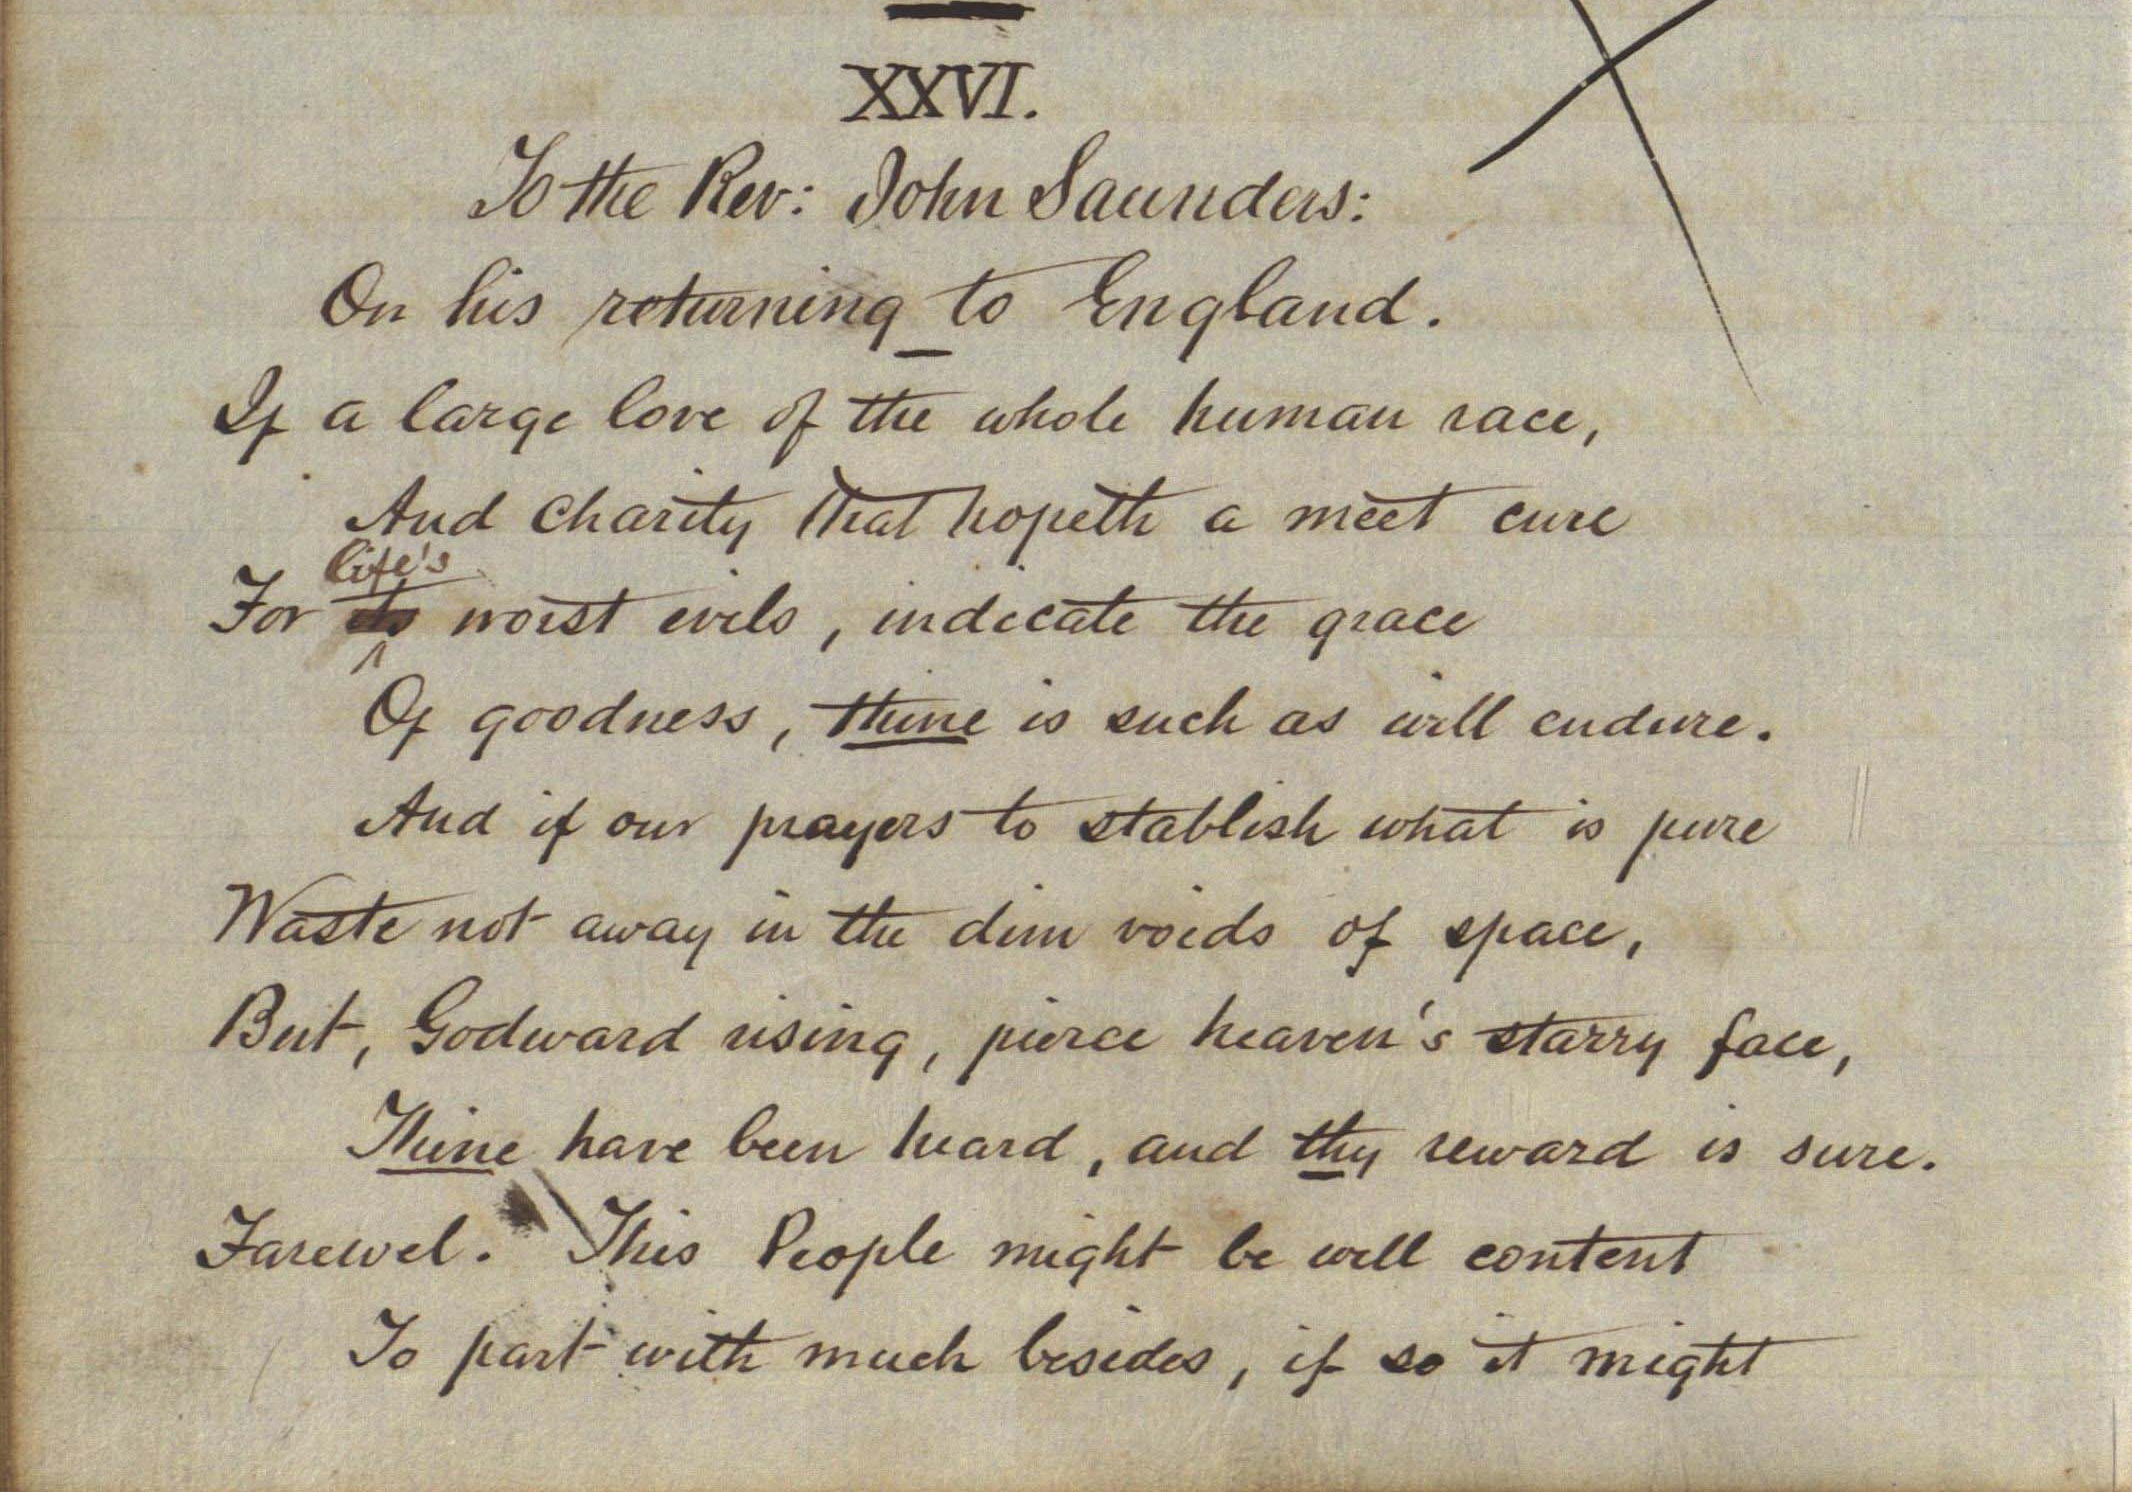 XXVI.
To the Rev: John Saunders:
On his returning to England.
If a large love of the whole human race,
And charity that hopeth a meet cure
life's
For its worst evils, indicate the grace
Of goodness, thine is such as will endure.
And if our prayers to stablish what is pure
Waste not away in the dim voids of space,
But, Godward rising, pierce heaven's starry face,
Thine have been heard, and thy reward is sure.
Farewel. This People might be well content
To part with much besides, if so it might